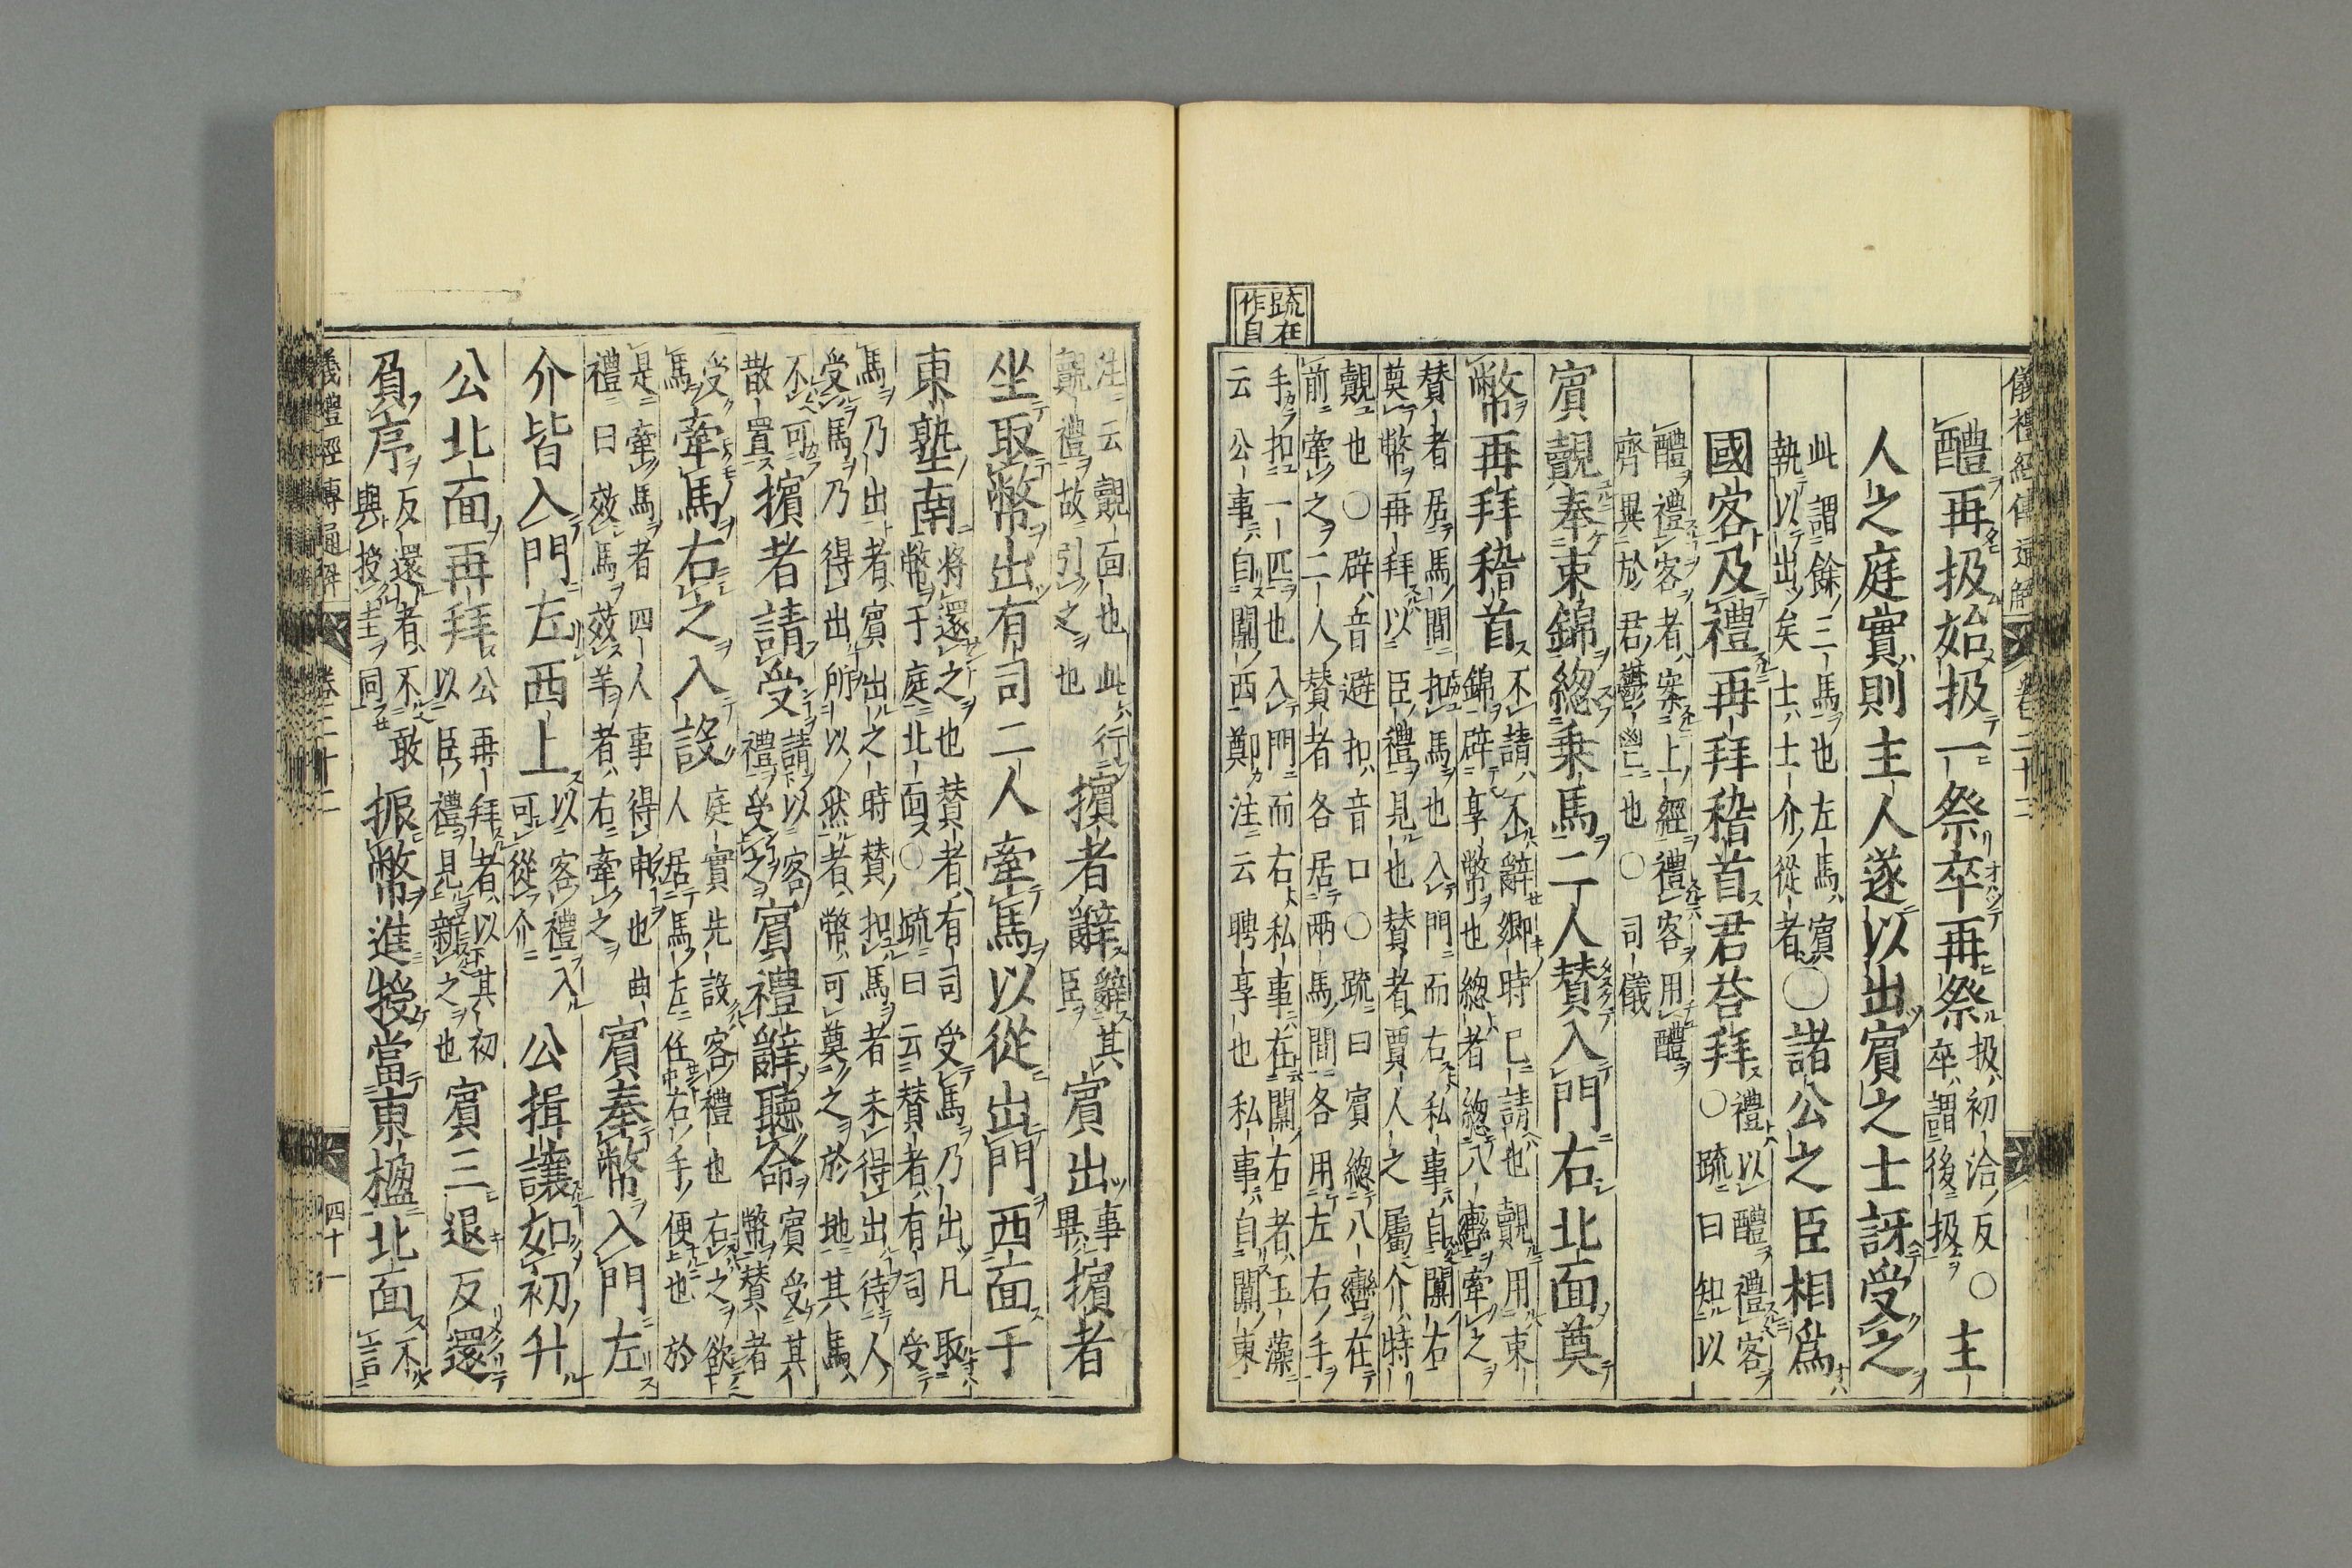 儀禮經傳通解 卷二十二
醴再扱始扱一祭卒再祭
扱初洽反○
卒謂後扱
主
人之庭實則主人遂以出賓之士訝受之
此謂餘三馬也左馬賓
執以出矣士士介從者
○諸公之臣相爲
國客及禮再拜稽首君荅拜
禮以醴禮客
○疏曰知以
醴禮客者案上經禮客用醴
齊異於君鬱鬯也○司儀
賓覿奉束錦總乗馬二人賛入門右北面奠
幣再拜稽首
不請不辭卿時已請也覿用束
錦辟享幣也總者總八轡牽之
賛者居馬間扣馬也入門而右私事自闑右
奠幣再拜以臣禮見也賛者賈人之屬介特
覿也○辟音避扣音口○疏曰賓總八轡在
前牽之二人賛者各居兩馬間各用左右手
手扣一匹也入門而右私事在闑右者玉藻
云公事自闑西鄭注云聘享也私事自闑東
疏在
作自
注云覿面也此行
覿禮故引之也
擯者辭
辭其
臣
賓出
事
畢
擯者
坐取幣出有司二人牽馬以從出門西面于
東塾南
將還之也賛者有司受馬乃出凡取
幣于庭北面○疏曰云賛者有司受
馬乃出者賓出之時賛扣馬者未得出待人
受馬乃得出所以然者幣可奠之於地其馬
不可
散置
擯者請受
請以客
禮受之
賓禮辭聽命
賓受其
幣賛者
受
馬
牽馬右之入設
庭實先設客禮也右之欲
人居馬左任右手便也於
是牽馬者四人事得申也曲
禮曰效馬效羊者右牽之
賓奉幣入門左
介皆入門左西上
以客禮入
可從介
公揖讓如初升
公北面再拜
公再拜者以其初
以臣禮見新之也
賓三退反還
負序
反還者不敢
與授圭同
振幣進授當東楹北面
不
言
儀禮經傳通解 卷二十二 四十一